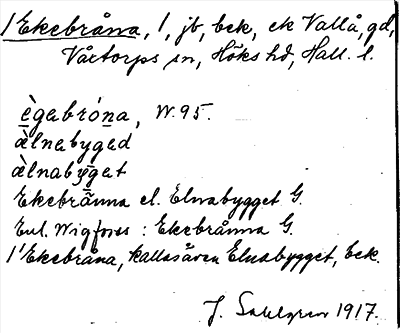 1 Ekebråna, 1, jb, bek, ek Vallå, gd,
Vårtorps sn, Höks hd, Hall. l.
ègabróna, W. 95.
àlnabyged
àlnabyget
Ekebrånna el. Elnabygget G.
Enl. Wigforss: Ekebrånna G.
1'Ekebråna, kallas även Elnabygget, bek.
J. Sahlgren 1917.